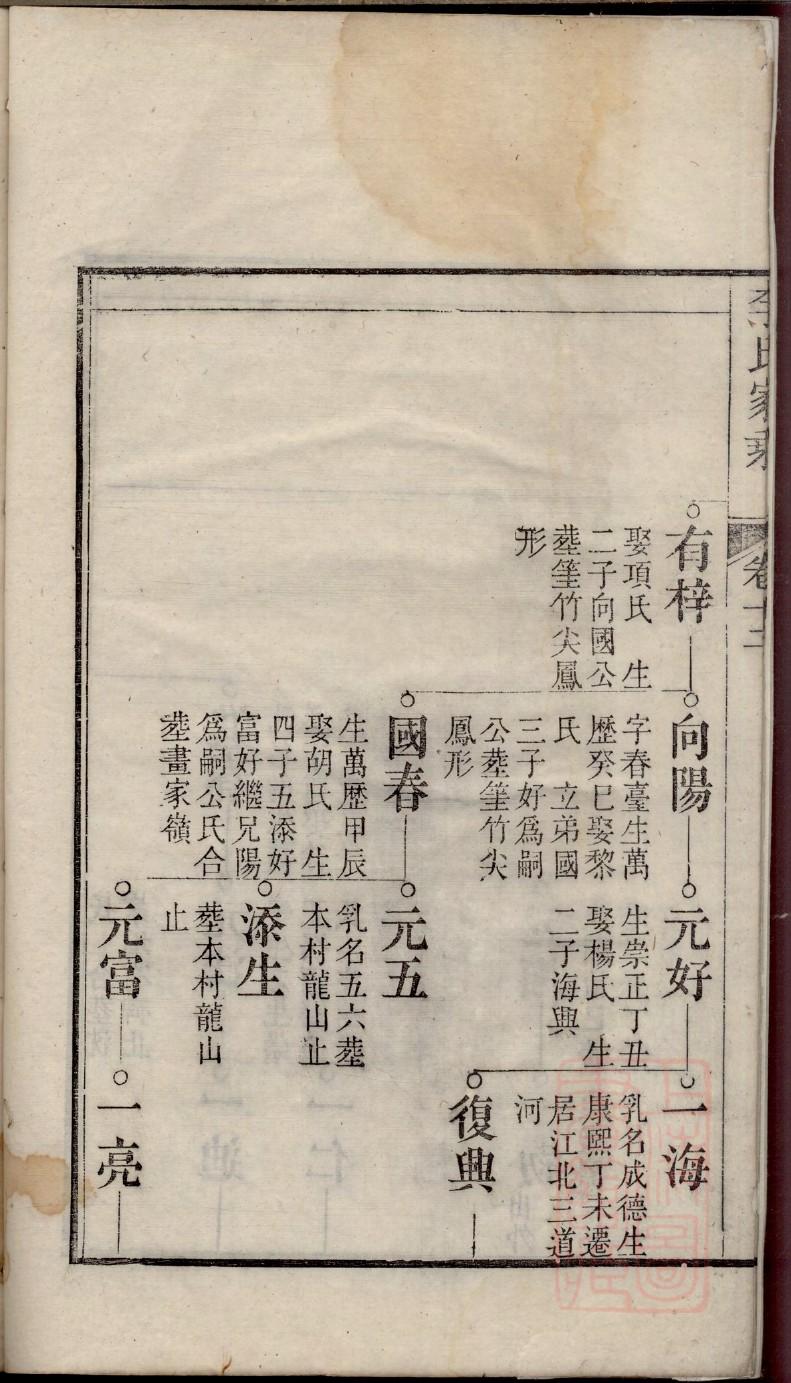 李氏家乘
卷十二
有梓
娶項氏　生
二子向國公
塟筀竹尖鳳
形
向陽
字春臺生萬
歷癸巳娶黎
氏　立弟國
三子好爲嗣
公塟筀竹尖
鳳形
國春
生萬歷甲辰
娶胡氏　生
四子五添好
富好繼兄陽
爲嗣公氏合
塟畫家嶺
元好
生崇正丁丑
娶楊氏　生
二子海興
元五
乳名五六塟
本村龍山止
添生
塟本村龍山
止
元富
一海
乳名成德生
康熙丁未遷
居江北三道
河
復興
一亮